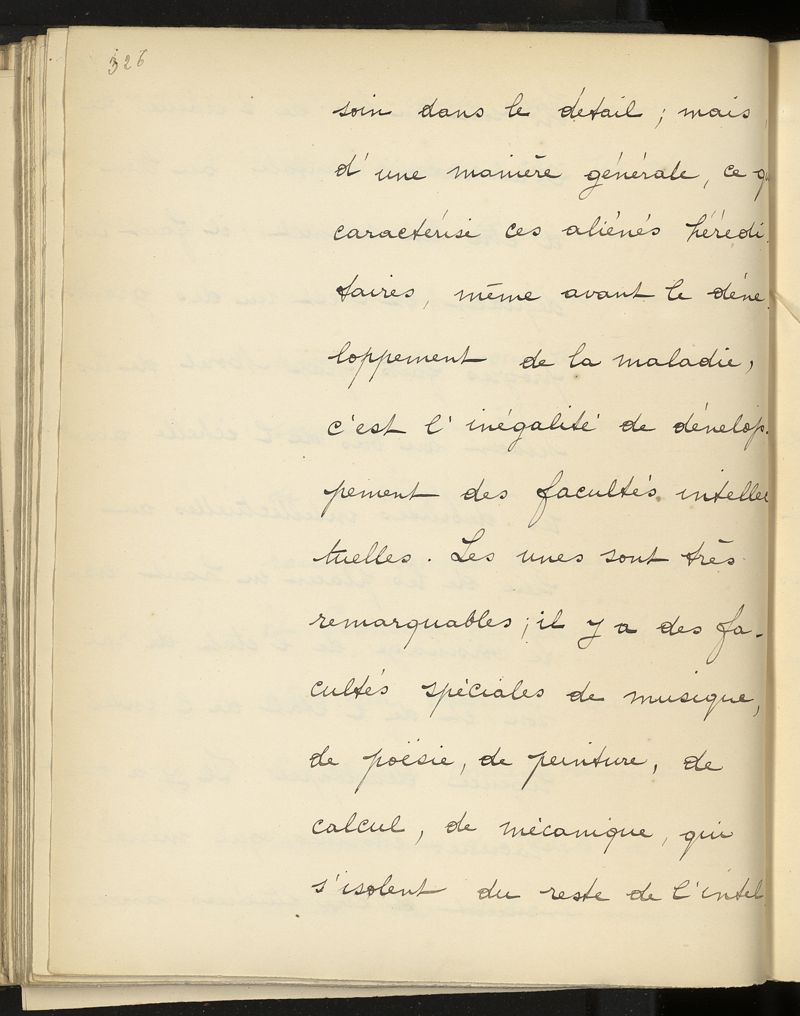 326
soin dans le détail ; mais
d'une manière générale, ce q
caractérise ces aliénés hérédi
taires, même avant le déve
loppement de la maladie,
c'est l'inégalité de dévelop-
pement des facultés intellec
tuelles. Les unes sont très
remarquables ; il y a des fa-
cultés spéciales de musique,
de poësie, de peinture, de
calcul, de mécanique, qui
s'isolent du reste de l'intel